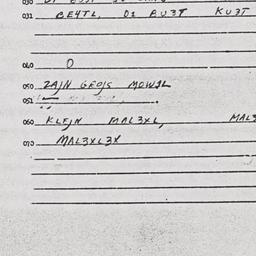 031 BE4TL, DI BU3T KU3T
040 O
050 ZAJN GEOJS MOWIL
051
060 KLEJN MAL3XL, MAL3
070 MAL3XL3X